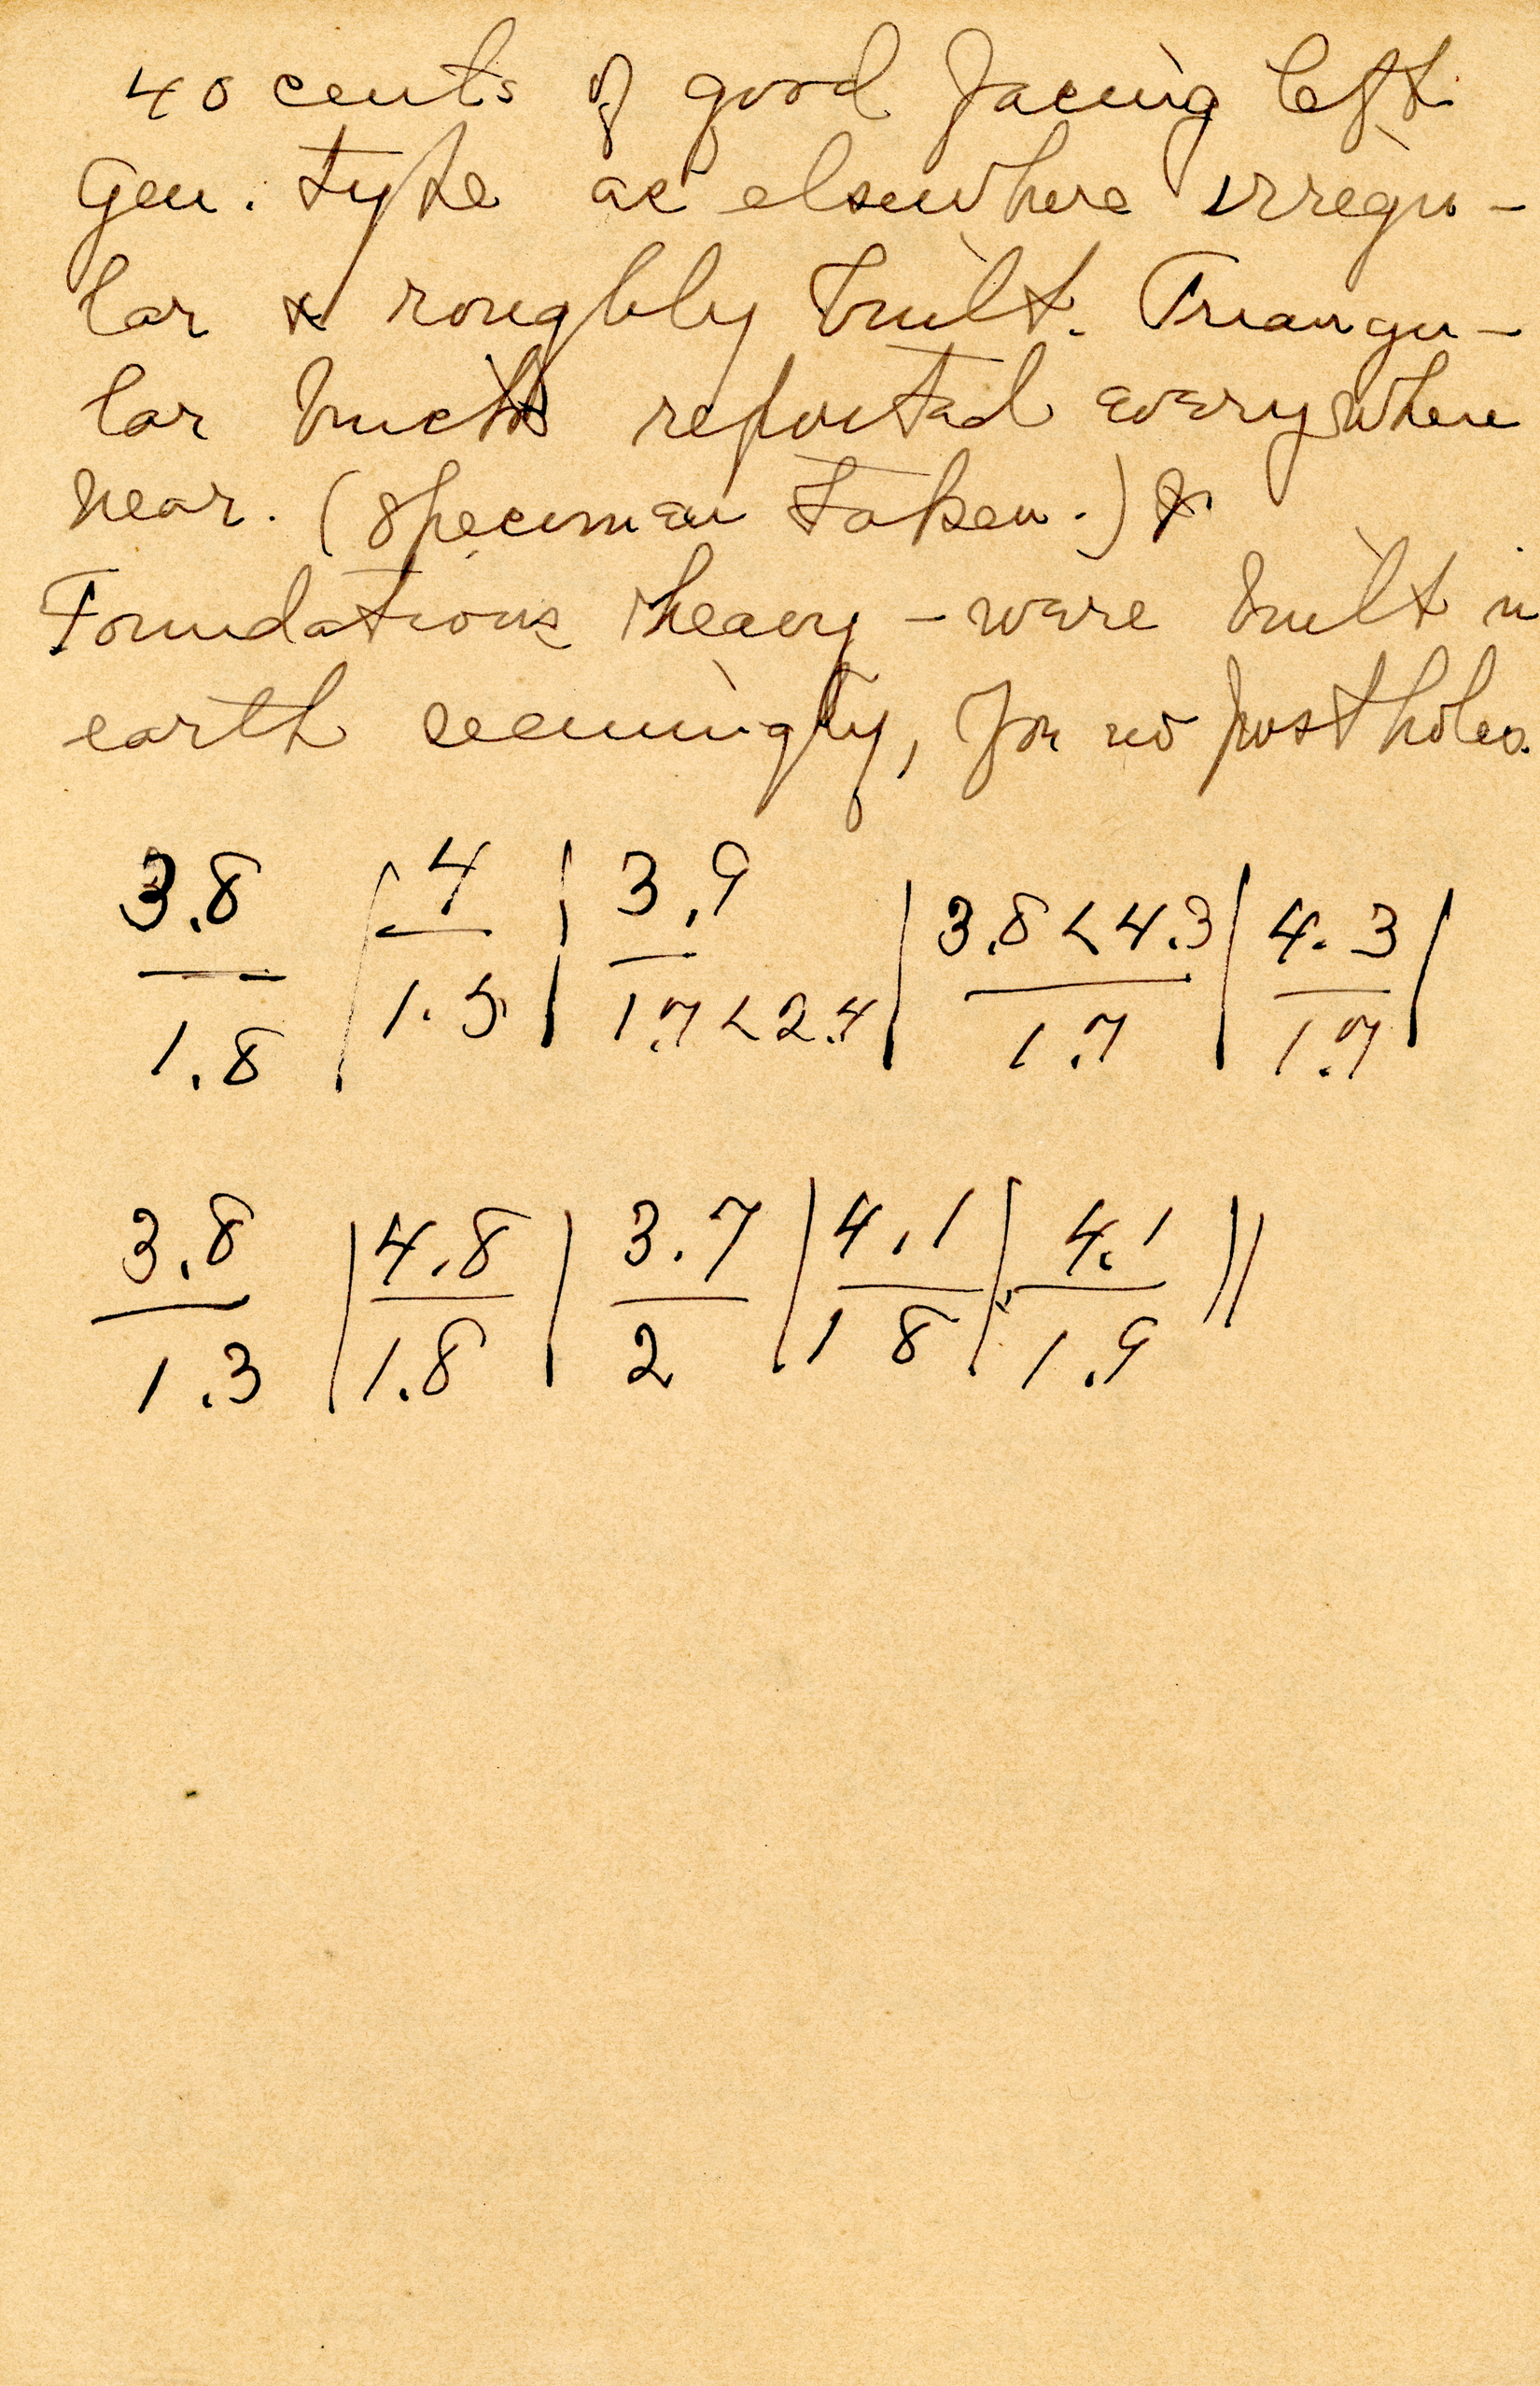 40 cents of good facing left.
Gen. type as elsewhere irregu-
lar & roughly built. Triangu-
lar bricks reported everywhere
near. (Specimen taken.) &
Foundations heavy - were built in
earth seemingly, for no postholes.
3.8 | 4 | 3.9 | 3.8<4.3 | 4.3 |
1.8 | 1.5 | 1.7<2.4 | 1.7 | 1.7 |
3.8 | 4.8 | 3.7 | 4.1 | 4.1 ||
1.3 | 1.8 | 2 | 1 8 | 1.9 ||